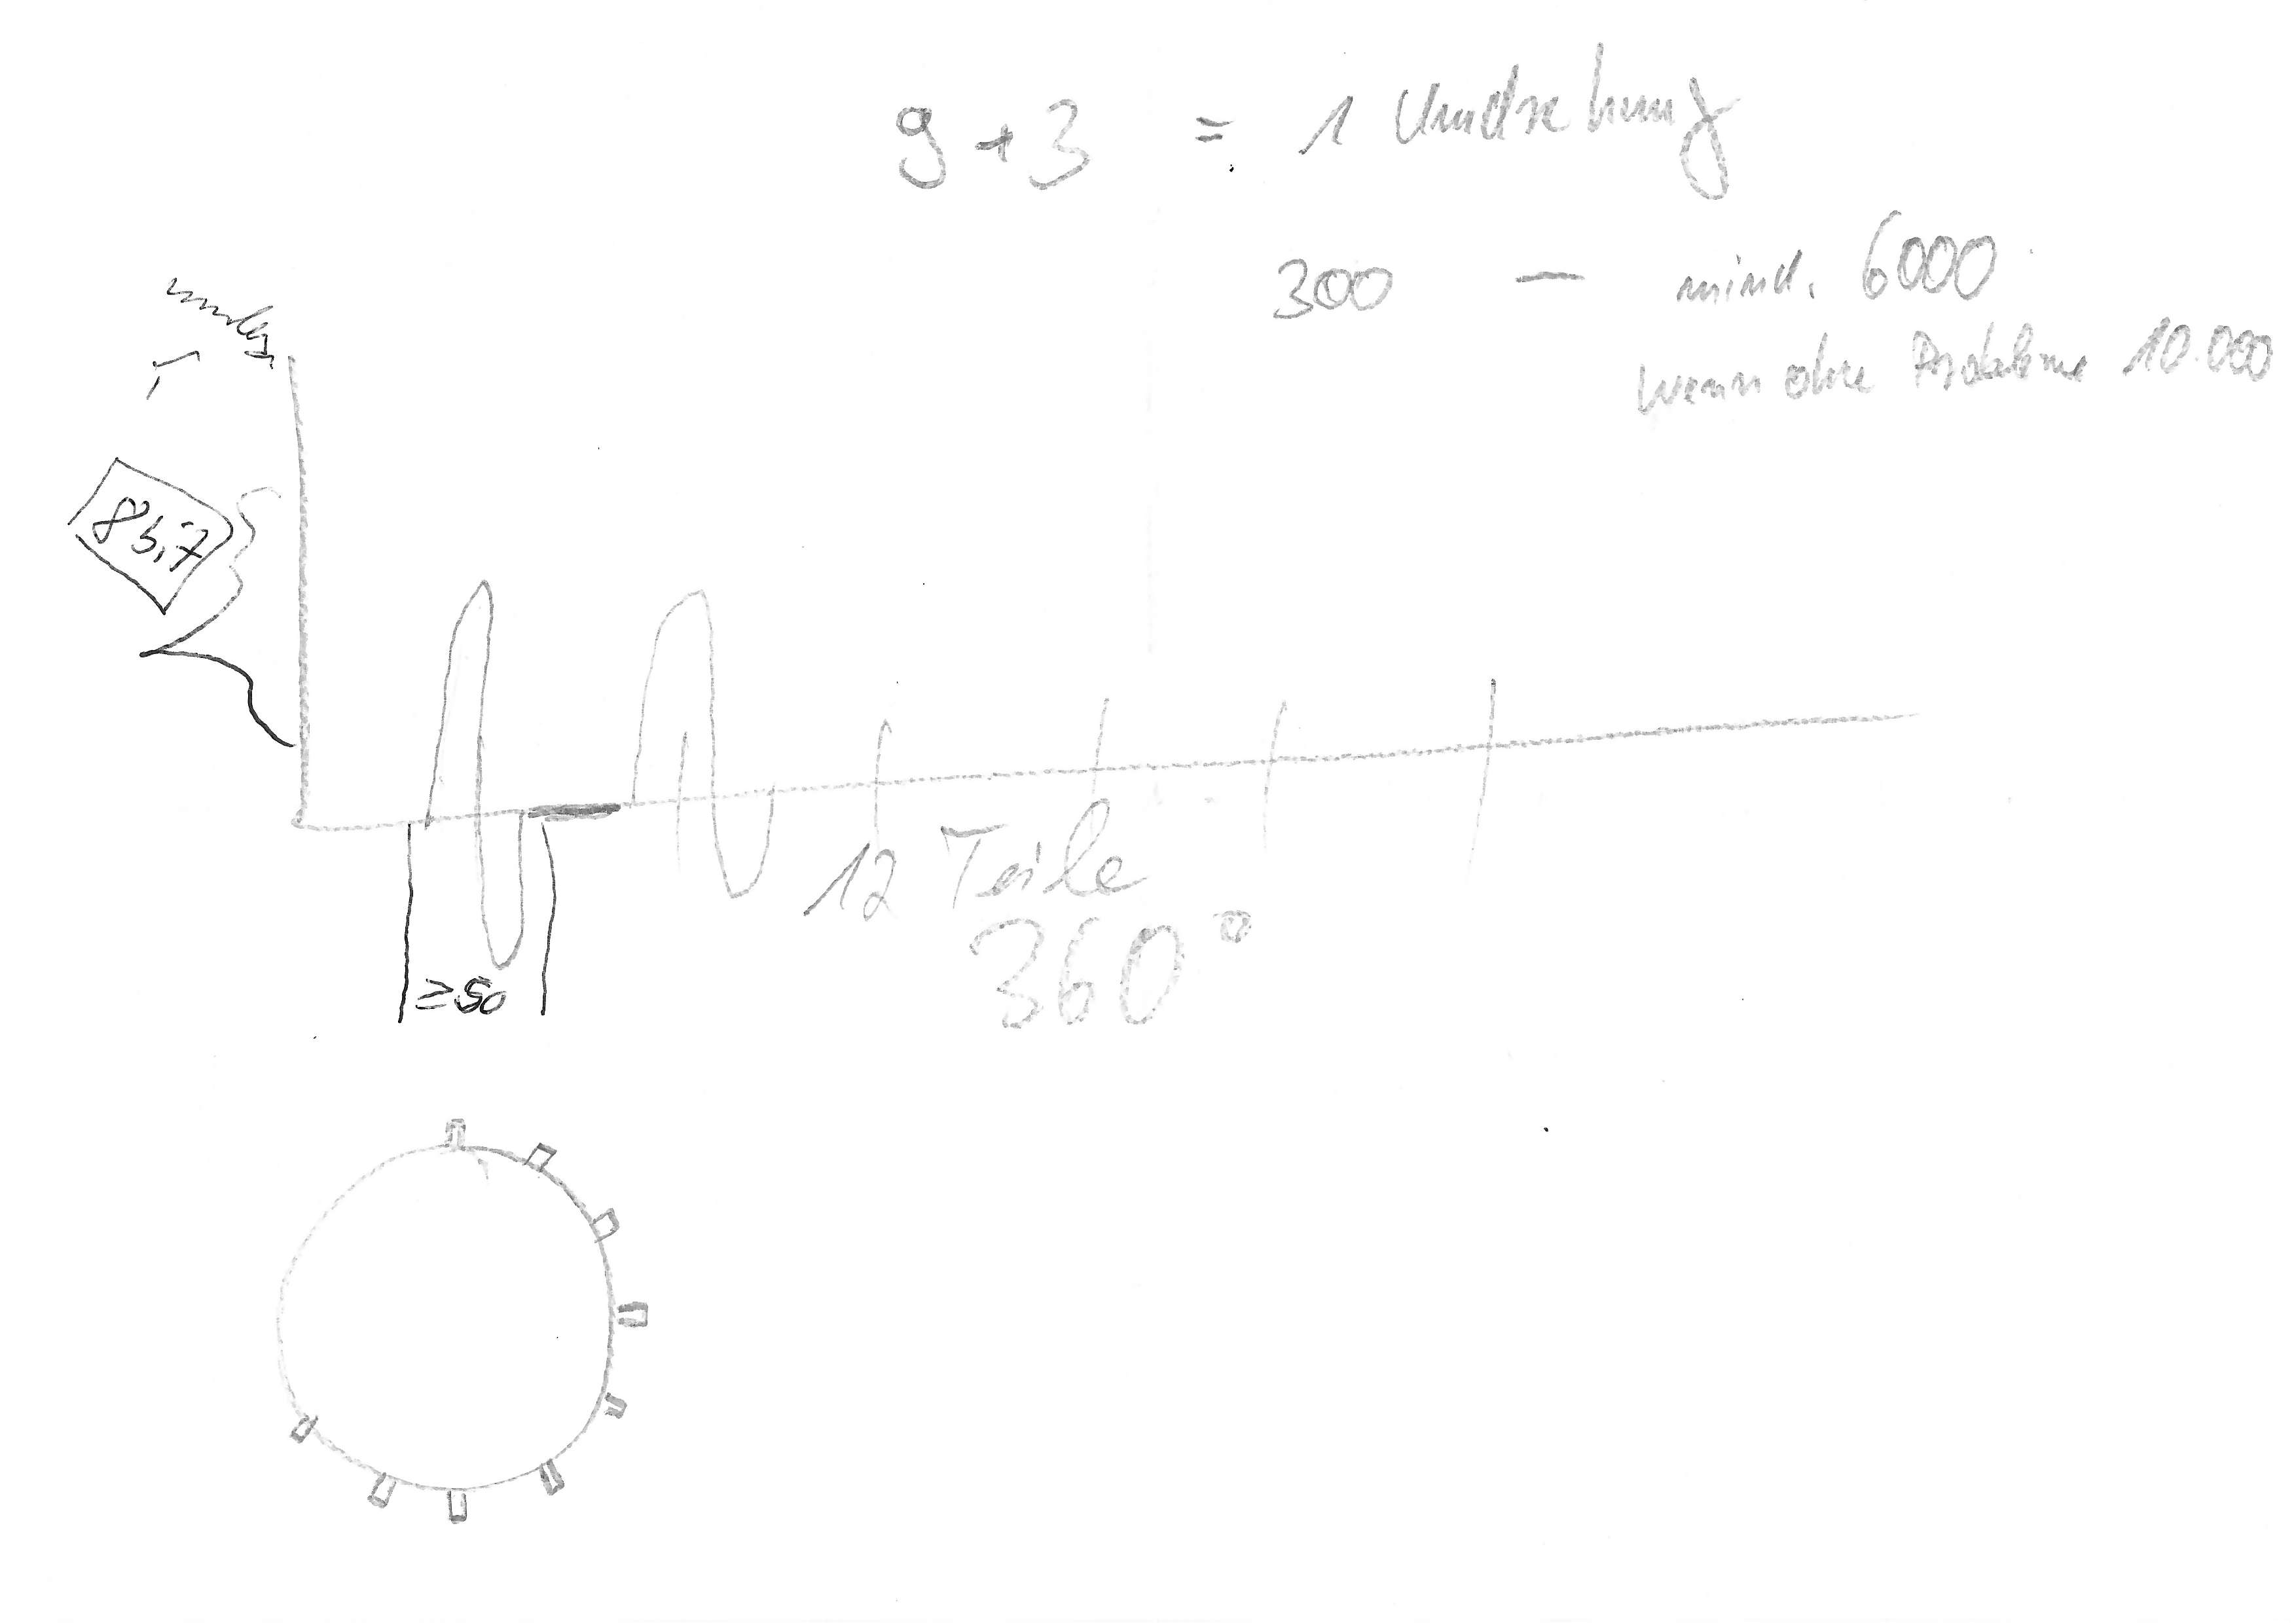 9 + 3 = 1 Umdrehung
300 — mind. 6000
wenn ohne Probleme 10.000
8 bit
12 Teile
360°
≥50